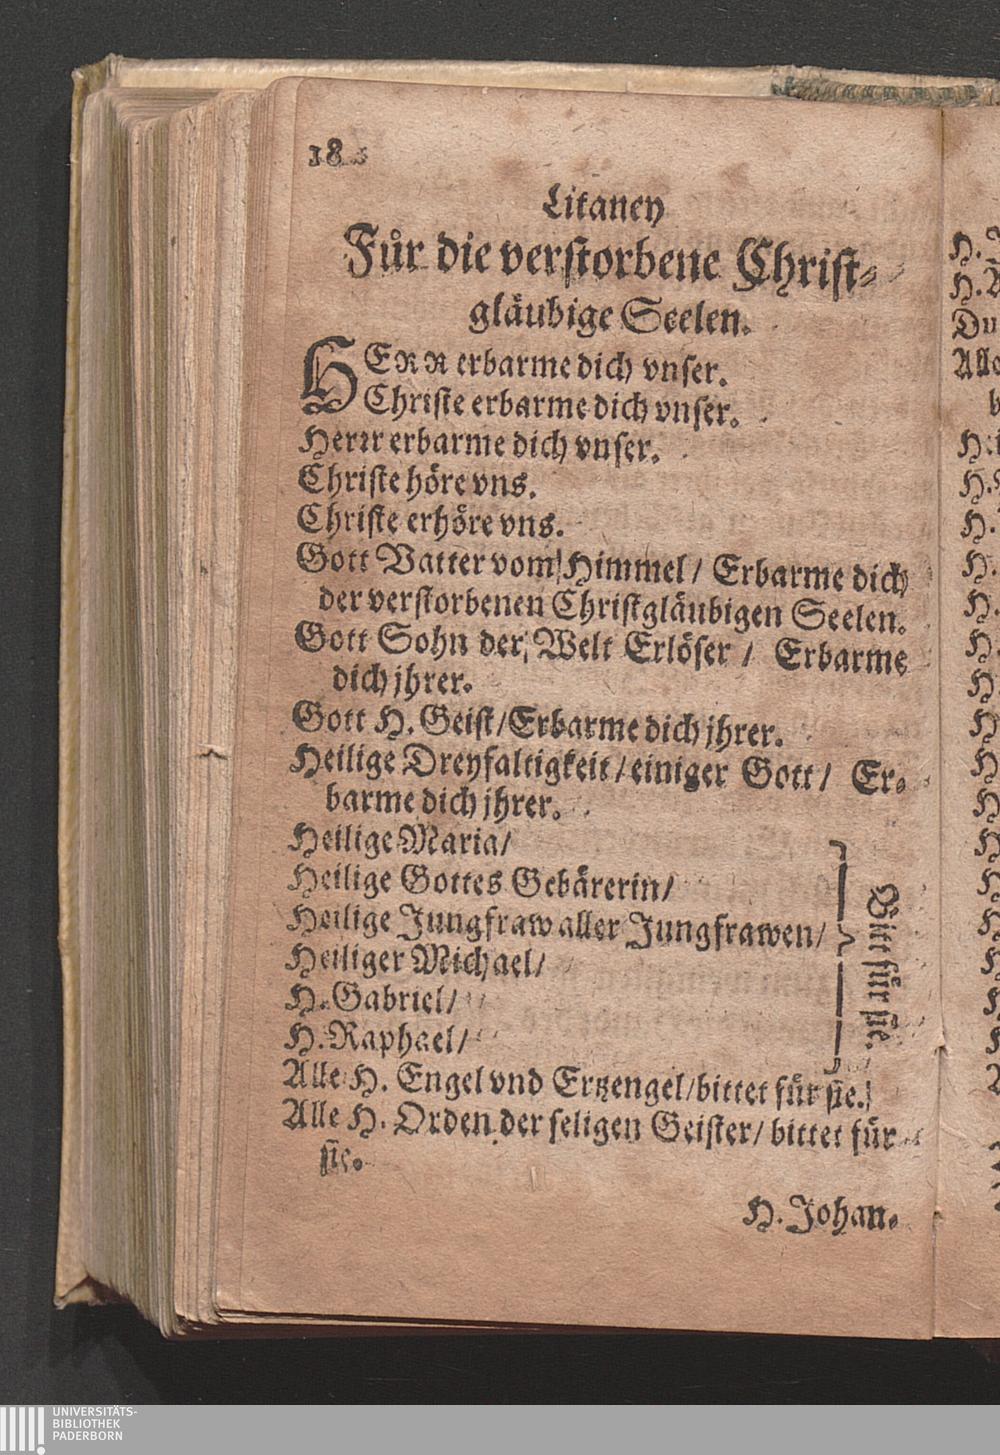 18
Litaney
Für die verstorbene Christ-
gläubige Seelen.
HERR erbarme dich vnser.
Christe erbarme dich vnser.
Herrr erbarme dich vnser.
Christe höre vns.
Christe erhöre vns.
Gott Vatter vom Himmel / Erbarme dich
der verstorbenen Christgläubigen Seelen.
Gott Sohn der Welt Erlöser / Erbarme
dich jhrer.
Gott H. Geist / Erbarme dich jhrer.
Heilige Dreyfaltigkeit / einiger Gott / Er-
barme dich jhrer.
Heilige Maria /
Heilige Gottes Gebärerin /
Heilige Jungfraw aller Jungfrawen /
Heiliger Michael /
H. Gabriel /
H. Raphael /
Bitt für sie.
Alle H. Engel vnd Ertzengel / bittet für sie.
Alle H. Orden der seligen Geister / bittet für
sie.
H. Johan-
H.
H.
Du
Alle
H.
H.
H.
H.
H.
H.
UNIVERSITÄTS-
BIBLIOTHEK
PADERBORN